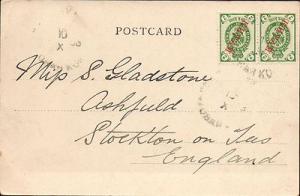 POSTCARD
Miss S. Gladstone
Ashfield
Stockton on Tees
England